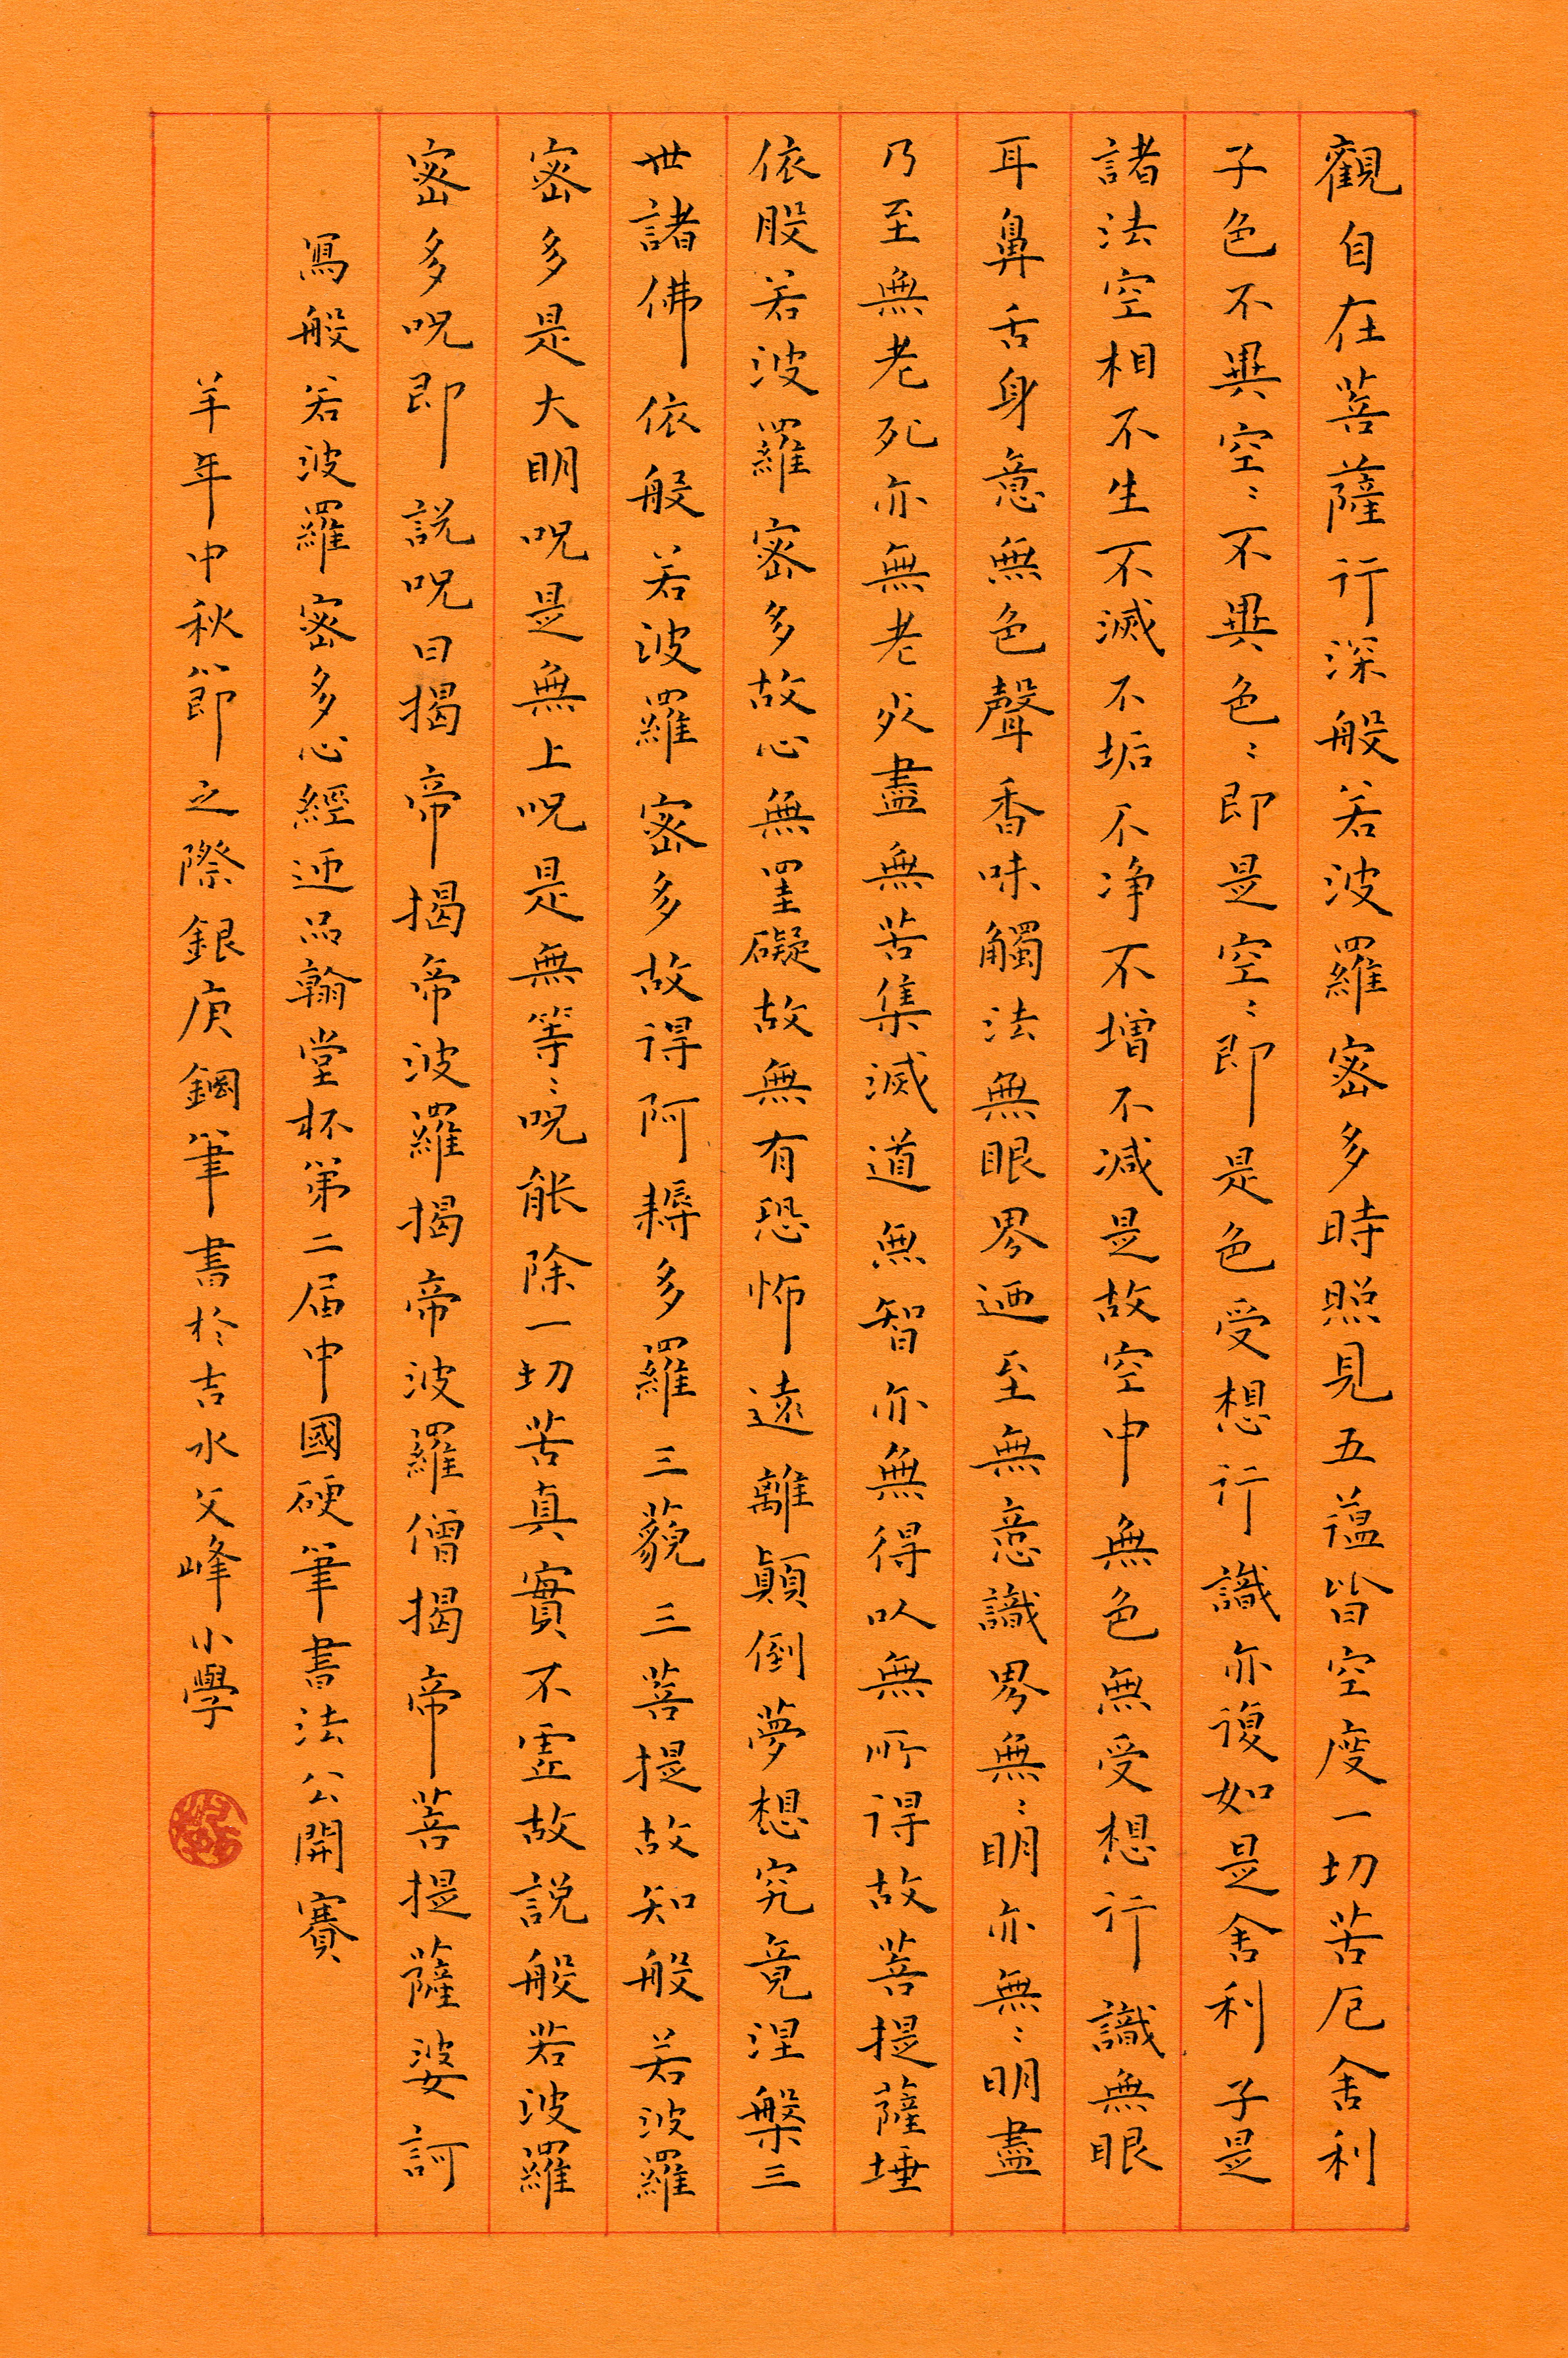 觀自在菩薩行深般若波羅密多時照見五蕴皆空度一切苦厄舍利
子色不異空〻不異色〻即是空〻即是色受想行識亦復如是舍利子是
諸法空相不生不滅不垢不净不增不减是故空中無色無受想行識無眼
耳鼻舌身意無色聲香味觸法無眼界迺至無意識界無〻明亦無〻明盡
乃至無老死亦無老死盡無苦集滅道無智亦無得以無所得故菩提薩埵
依般若波羅密多故心無罣礙故無有恐怖遠離顛倒夢想究竟涅槃三
世諸佛依般若波羅密多故得阿耨多羅三藐三菩提故知般若波羅
密多是大明呪是無上呪是無等〻呪能除一切苦真實不虚故説般若波羅
密多呪即説呪曰揭帝揭帝波羅揭帝波羅僧揭帝菩提薩婆訶
寫般若波羅密多心經迺品翰堂杯第二届中國硬筆書法公開賽
羊年中秋節之際銀庚鋼筆書於吉水文峰小學